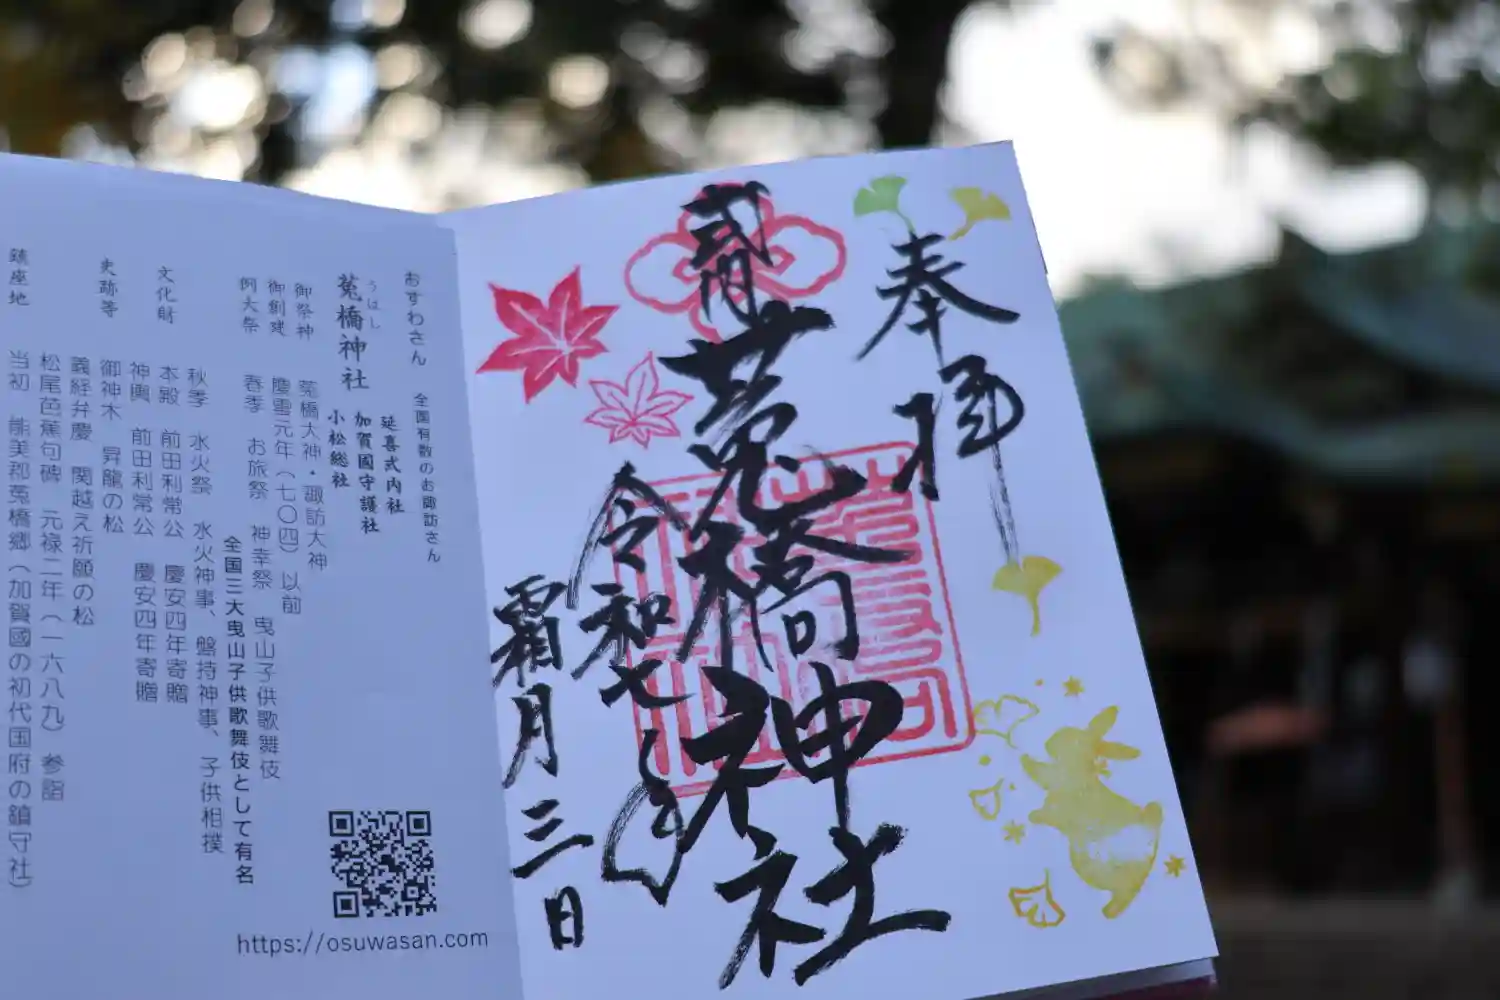 奉拝
式内
菟橋神社
令和七とし
霜月三日
おすわさん　全国有数のお諏訪さん
うはし
菟橋神社
延喜式内社
加賀國守護社
小松総社
御祭神　菟橋大神・諏訪大神
御創建　慶雲元年（七〇四）以前
例大祭　春季　お旅祭　神幸祭　曳山子供歌舞伎
全国三大曳山子供歌舞伎として有名
秋季　水火祭　水火神事、盤持神事、子供相撲
文化財　本殿　前田利常公　慶安四年寄贈
神輿　前田利常公　慶安四年寄贈
史跡等　御神木　昇龍の松
義経弁慶　関越え祈願の松
松尾芭蕉句碑　元禄二年（一六八九）参詣
鎮座地　当初　能美郡菟橋郷（加賀國の初代国府の鎮守社）
https://osuwasan.com